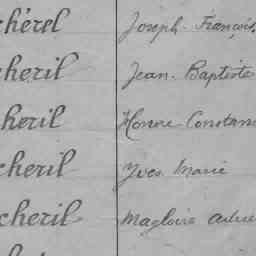 chérel Joseph-François
cheril Jean-Baptiste
cheril Honoré Constan
cheril Yves Marie
cheril Magloire